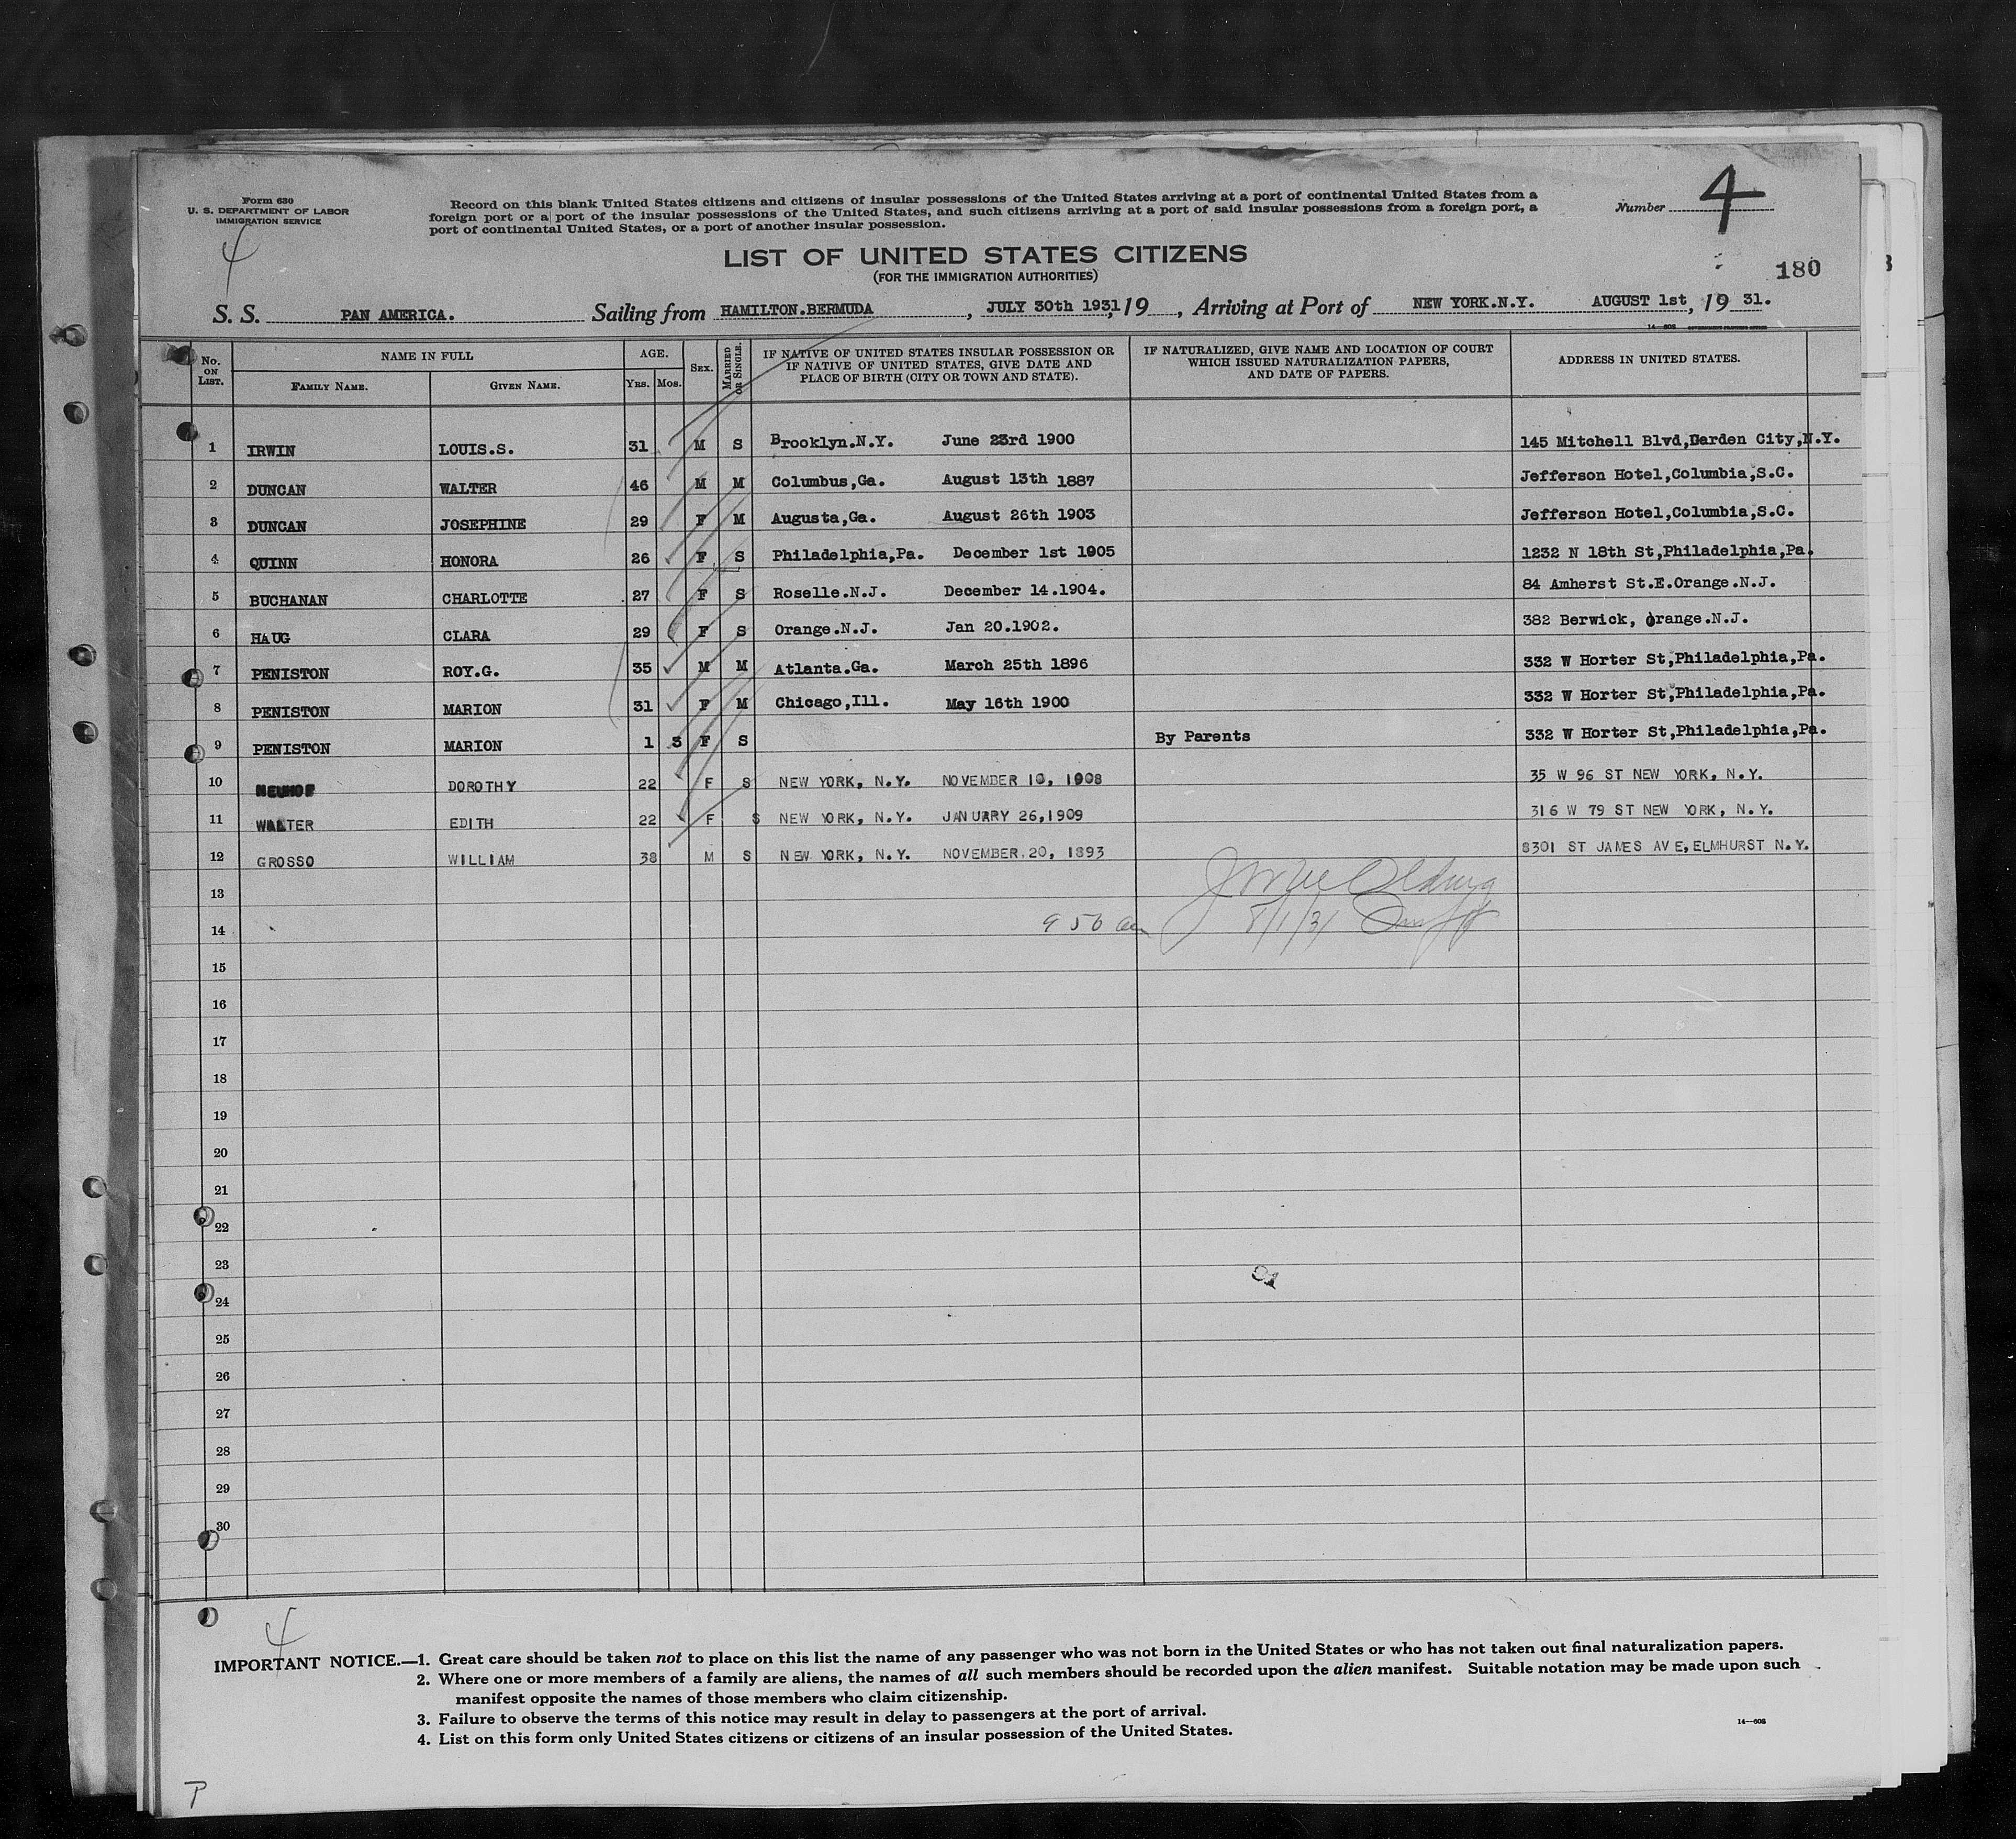 Form 630
U. S. DEPARTMENT OF LABOR
IMMIGRATION SERVICE
4
Record on this blank United States citizens and citizens of insular possessions of the United States arriving at a port of continental United States from a
foreign port or a port of the insular possessions of the United States, and such citizens arriving at a port of said insular possessions from a foreign port, a
port of continental United States, or a port of another insular possession.
Number 4
LIST OF UNITED STATES CITIZENS
(FOR THE IMMIGRATION AUTHORITIES)
180
S. S. PAN AMERICA. Sailing from HAMILTON.BERMUDA, JULY 30th 1931, 19 , Arriving at Port of NEW YORK.N.Y. AUGUST 1st, 19 31.
14—608
No. ON LIST. NAME IN FULL FAMILY NAME. GIVEN NAME. AGE. YRS. MOS. SEX. MARRIED OR SINGLE. IF NATIVE OF UNITED STATES INSULAR POSSESSION OR IF NATIVE OF UNITED STATES, GIVE DATE AND PLACE OF BIRTH (CITY OR TOWN AND STATE). IF NATURALIZED, GIVE NAME AND LOCATION OF COURT WHICH ISSUED NATURALIZATION PAPERS, AND DATE OF PAPERS. ADDRESS IN UNITED STATES.
1 IRWIN LOUIS.S. 31 M S Brooklyn.N.Y. June 23rd 1900 145 Mitchell Blvd,Darden City,N.Y.
2 DUNCAN WALTER 46 M M Columbus,Ga. August 13th 1887 Jefferson Hotel,Columbia,S.C.
3 DUNCAN JOSEPHINE 29 F M Augusta,Ga. August 26th 1903 Jefferson Hotel,Columbia,S.C.
4 QUINN HONORA 26 F S Philadelphia,Pa. December 1st 1905 1232 N 18th St,Philadelphia,Pa.
5 BUCHANAN CHARLOTTE 27 F S Roselle.N.J. December 14.1904. 84 Amherst St.E.Orange.N.J.
6 HAUG CLARA 29 F S Orange.N.J. Jan 20.1902. 382 Berwick, Orange.N.J.
7 PENISTON ROY.G. 35 M M Atlanta.Ga. March 25th 1896 332 W Horter St,Philadelphia,Pa.
8 PENISTON MARION 31 F M Chicago,Ill. May 16th 1900 332 W Horter St,Philadelphia,Pa.
9 PENISTON MARION 1 3 F S By Parents 332 W Horter St,Philadelphia,Pa.
10 NEUHOF DOROTHY 22 F S NEW YORK, N.Y. NOVEMBER 10, 1908 35 W 96 ST NEW YORK, N.Y.
11 WALTER EDITH 22 F S NEW YORK, N.Y. JANUARY 26,1909 316 W 79 ST NEW YORK, N.Y.
12 GROSSO WILLIAM 38 M S NEW YORK, N.Y. NOVEMBER.20, 1893 8301 ST JAMES AVE,ELMHURST N.Y.
13
14 9 50 am 8/1/31
15
16
17
18
19
20
21
22
23
24
25
26
27
28
29
30
4
IMPORTANT NOTICE.—1. Great care should be taken not to place on this list the name of any passenger who was not born in the United States or who has not taken out final naturalization papers.
2. Where one or more members of a family are aliens, the names of all such members should be recorded upon the alien manifest. Suitable notation may be made upon such
manifest opposite the names of those members who claim citizenship.
3. Failure to observe the terms of this notice may result in delay to passengers at the port of arrival.
4. List on this form only United States citizens or citizens of an insular possession of the United States.
14—608
P